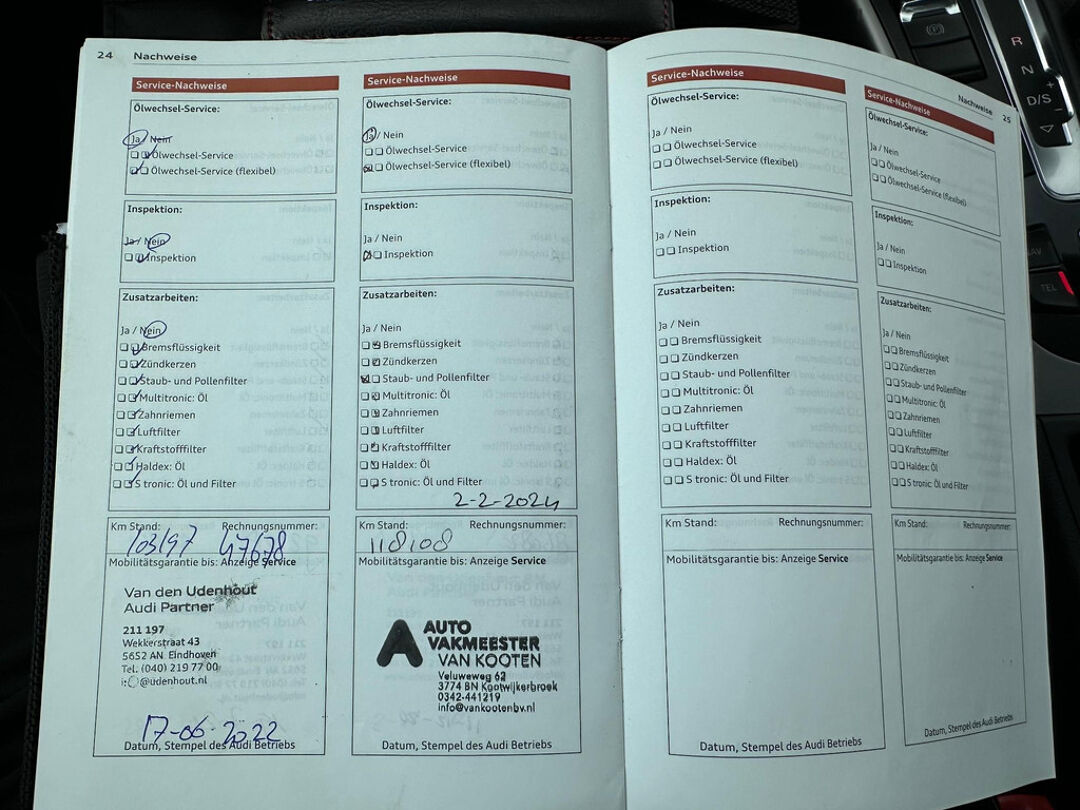 24 Nachweise
Service-Nachweise
Ölwechsel-Service:
Ja / Nein
Ölwechsel-Service
Ölwechsel-Service (flexibel)
Inspektion:
Ja / Nein
Inspektion
Zusatzarbeiten:
Ja / Nein
Bremsflüssigkeit
Zündkerzen
Staub- und Pollenfilter
Multitronic: Öl
Zahnriemen
Luftfilter
Kraftstofffilter
Haldex: Öl
S tronic: Öl und Filter
Km Stand: Rechnungsnummer:
103197 47678
Mobilitätsgarantie bis: Anzeige Service
Van den Udenhout
Audi Partner
211 197
Wekkerstraat 43
5652 AN Eindhoven
Tel. (040) 219 77 00
@udenhout.nl
17-06-2022
Datum, Stempel des Audi Betriebs
Service-Nachweise
Ölwechsel-Service:
Ja / Nein
Ölwechsel-Service
Ölwechsel-Service (flexibel)
Inspektion:
Ja / Nein
Inspektion
Zusatzarbeiten:
Ja / Nein
Bremsflüssigkeit
Zündkerzen
Staub- und Pollenfilter
Multitronic: Öl
Zahnriemen
Luftfilter
Kraftstofffilter
Haldex: Öl
S tronic: Öl und Filter
2-2-2024
Km Stand: Rechnungsnummer:
118108
Mobilitätsgarantie bis: Anzeige Service
AUTO
VAKMEESTER
VAN KOOTEN
Veluweweg 62
3774 BN Kootwijkerbroek
0342-441219
info@vankootenbv.nl
Datum, Stempel des Audi Betriebs
Service-Nachweise
Ölwechsel-Service:
Ja / Nein
Ölwechsel-Service
Ölwechsel-Service (flexibel)
Inspektion:
Ja / Nein
Inspektion
Zusatzarbeiten:
Ja / Nein
Bremsflüssigkeit
Zündkerzen
Staub- und Pollenfilter
Multitronic: Öl
Zahnriemen
Luftfilter
Kraftstofffilter
Haldex: Öl
S tronic: Öl und Filter
Km Stand: Rechnungsnummer:
Mobilitätsgarantie bis: Anzeige Service
Datum, Stempel des Audi Betriebs
Nachweise 25
Service-Nachweise
Ölwechsel-Service:
Ja / Nein
Ölwechsel-Service
Ölwechsel-Service (flexibel)
Inspektion:
Ja / Nein
Inspektion
Zusatzarbeiten:
Ja / Nein
Bremsflüssigkeit
Zündkerzen
Staub- und Pollenfilter
Multitronic: Öl
Zahnriemen
Luftfilter
Kraftstofffilter
Haldex: Öl
S tronic: Öl und Filter
Km Stand: Rechnungsnummer:
Mobilitätsgarantie bis: Anzeige Service
Datum, Stempel des Audi Betriebs
R
N
D/S
+
-
TEL